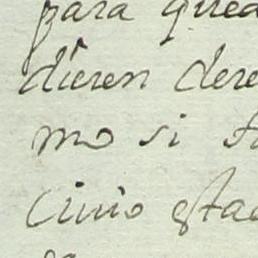 para que
dieren dere
mo si
cinio esta